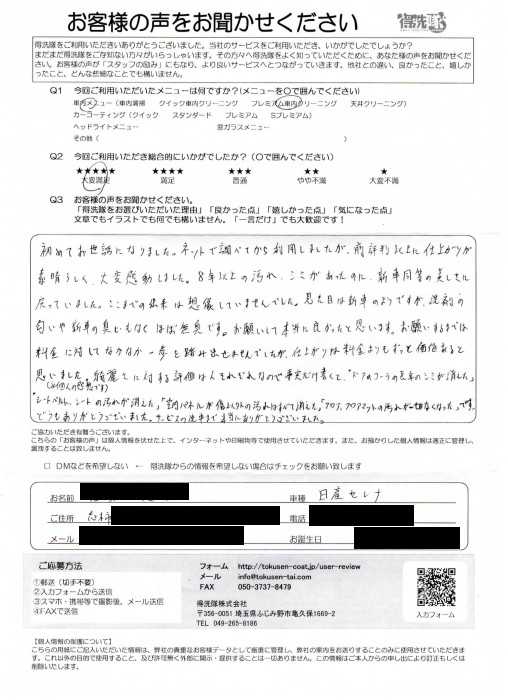 お客様の声をお聞かせください
得洗隊
得洗隊をご利用いただきありがとうございました。当社のサービスをご利用いただき、いかがでしたでしょうか？
まだまだ得洗隊をご存知ない方々がいらっしゃいます。その方々へ得洗隊をよく知っていただくために、あなた様の声をお聞かせください。お客様の声が「スタッフの励み」にもなり、より良いサービスへとつながっていきます。他社との違い、良かったこと、嬉しかったこと、どんな些細なことでも構いません。
Q1 今回ご利用いただいたメニューは何ですか？(メニューを〇で囲んでください)
車内メニュー（車内清掃 クイック車内クリーニング プレミアム車内クリーニング 天井クリーニング）
カーコーティング（クイック スタンダード プレミアム Sプレミアム）
ヘッドライトメニュー 窓ガラスメニュー
その他（ ）
Q2 今回ご利用いただき総合的にいかがでしたか？（〇で囲んでください）
★★★★★ ★★★★ ★★★ ★★ ★
大変満足 満足 普通 やや不満 大変不満
Q3 お客様の声をお聞かせください。
「得洗隊をお選びいただいた理由」「良かった点」「嬉しかった点」「気になった点」
文章でもイラストでも何でも構いません。「一言だけ」でも大歓迎です！
初めてお世話になりました。ネットで調べてから利用しましたが、前評判以上に仕上がりが
素晴らしく、大変感動しました。8年以上の汚れ、シミがあったのに、新車同等の美しさに
戻っていました。ここまでの効果は想像していませんでした。見た目は新車のようですが、洗剤の
匂いや新車の臭いもなくほぼ無臭です。お願いして本当に良かったと思います。お願いするまでは
料金に対してなかなか一歩を踏み出せませんでしたが、仕上がりは料金よりもずっと価値あると
思いました。綺麗さに対する評価は人それぞれなので事実だけ書くと、「ドアのフーの
(※個人の感想です)
シートベルト、シートの汚れが消えた」「
どうもありがとうございました。サービスの洗車まで本当にありがとうございました。
ご協力いただき有難うございます。
こちらの「お客様の声」は個人情報を伏せた上で、インターネットや印刷物等で使用させていただきます。また、お預かりした個人情報は適正に管理し、
漏洩することは致しません。
□ DMなどを希望しない ← 得洗隊からの情報を希望しない場合はチェックをお願い致します
お名前 車種 日産セレナ
ご住所 電話
メール お誕生日
ご応募方法
①郵送（切手不要）
②入力フォームから送信
③スマホ・携帯等で撮影後、メール送信
④FAXで送信
フォーム http://tokusen-coat.jp/user-review
メール info@tokusen-tai.com
FAX 050-3737-8479
得洗隊株式会社
〒356-0051 埼玉県ふじみ野市亀久保1669-2
TEL 049-265-6186
入力フォーム
【個人情報の保護について】
こちらの用紙にご記入いただいた情報は、弊社の貴重なお客様データとして厳重に管理し、弊社の車内をお送りすることのみに使用させていただきます。これ以外の目的で使用すること、及び許可無く外部に開示・提供することは一切ありません。この情報はご本人からの申し出により訂正もしくは削除いたします。